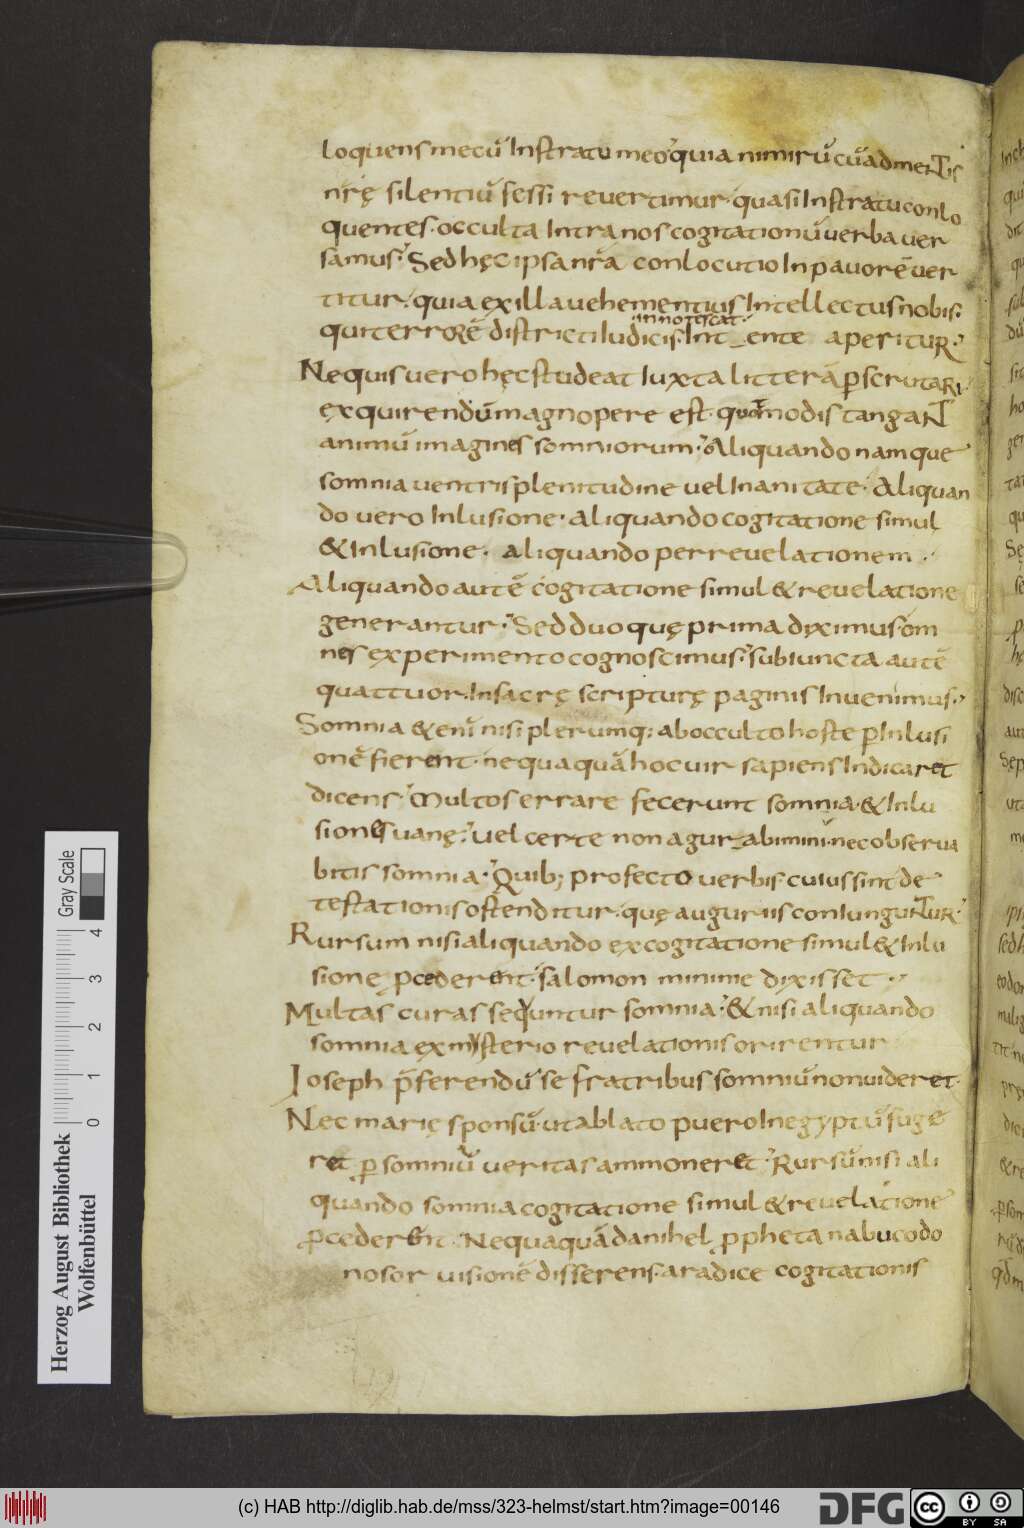 loquens mecū In stratu meo; quia nimirū cū ad mentis
nrę silentiū fessi revertimur. quasi In stratu conlo
quentes. occulta Intra nos cogitationū verba ver
samus. Sed hęc ipsa nr̄a conlocutio In pavorē ver
titur. quia ex illa vehementius Intellectus nobis.
innotescat
qui terrorē districti Iudicis. Int ente aperitur.
Nequis vero hęc studeat Iuxta litterā pscrutari
exquirendū magnopere est. quot modis tangant
animū imagines somniorum. Aliquando namque
somnia ventris plenitudine vel Inanitate. Aliquan
do vero Inlusione. aliquando cogitatione simul
& Inlusione. aliquando per revelationem.
Aliquando autē cogitatione simul & revelatione
generantur. Sed duo quę prima diximus. om
nes experimento cognoscimus. subiuncta autē
quattuor. In sacrę scripturę paginis Invenimus.
Somnia & enī nisi plerumq; ab occulto hoste p Inlusi
onē fierent. nequaquā hoc vir sapiens Indicaret
dicens. Multos errare fecerunt somnia. & Inlu
siones vanę. vel certe non agurabimini. nec observa
bitis somnia. Quib; profecto verbis. cuius sint de
testationis ostenditur. quę auguriis coniunguntur.
Rursum nisi aliquando ex cogitatione simul & Inlu
sione pcederent. salomon minime dixisset.
Multas curas sequntur somnia. & nisi aliquando
somnia ex mysterio revelationis orirentur
Ioseph p̄ferendū se fratribus somniū non videret.
Nec marię sponsū. ut ablato puero In egyptū fuge
ret p somniū veritas ammoneret. Rursū nisi ali
quando somnia cogitatione simul & revelatione
pcederent. Nequaquā danihel ppheta nabucodo
nosor visionē disserens. a radice cogitationis
Herzog August Bibliothek
Wolfenbüttel
Gray Scale
0 1 2 3 4
(c) HAB http://diglib.hab.de/mss/323-helmst/start.htm?image=00146
DFG
cc BY SA